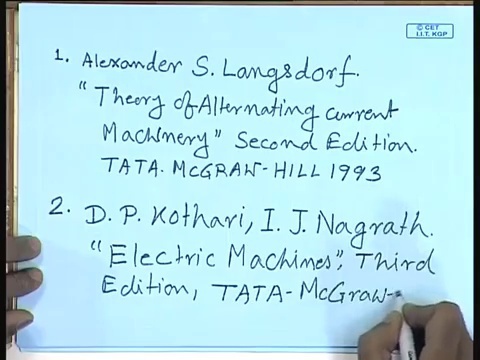 © CET
I.I.T. KGP
1. Alexander S. Langsdorf.
"Theory of Alternating current
Machinery" Second Edition.
TATA. McGRAW-HILL 1993
2. D. P. Kothari, I. J. Nagrath.
"Electric Machines", Third
Edition, TATA-McGraw-